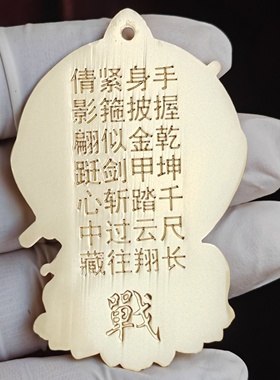 手握乾坤千尺长
身披金甲踏云翔
紧箍似剑斩过往
倩影翩跹心中藏
戰